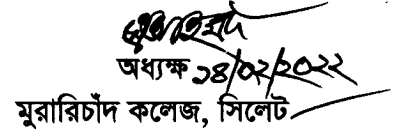 অধ্যক্ষ ১৪/০২/২০২২
মুরারিচাঁদ কলেজ, সিলেট